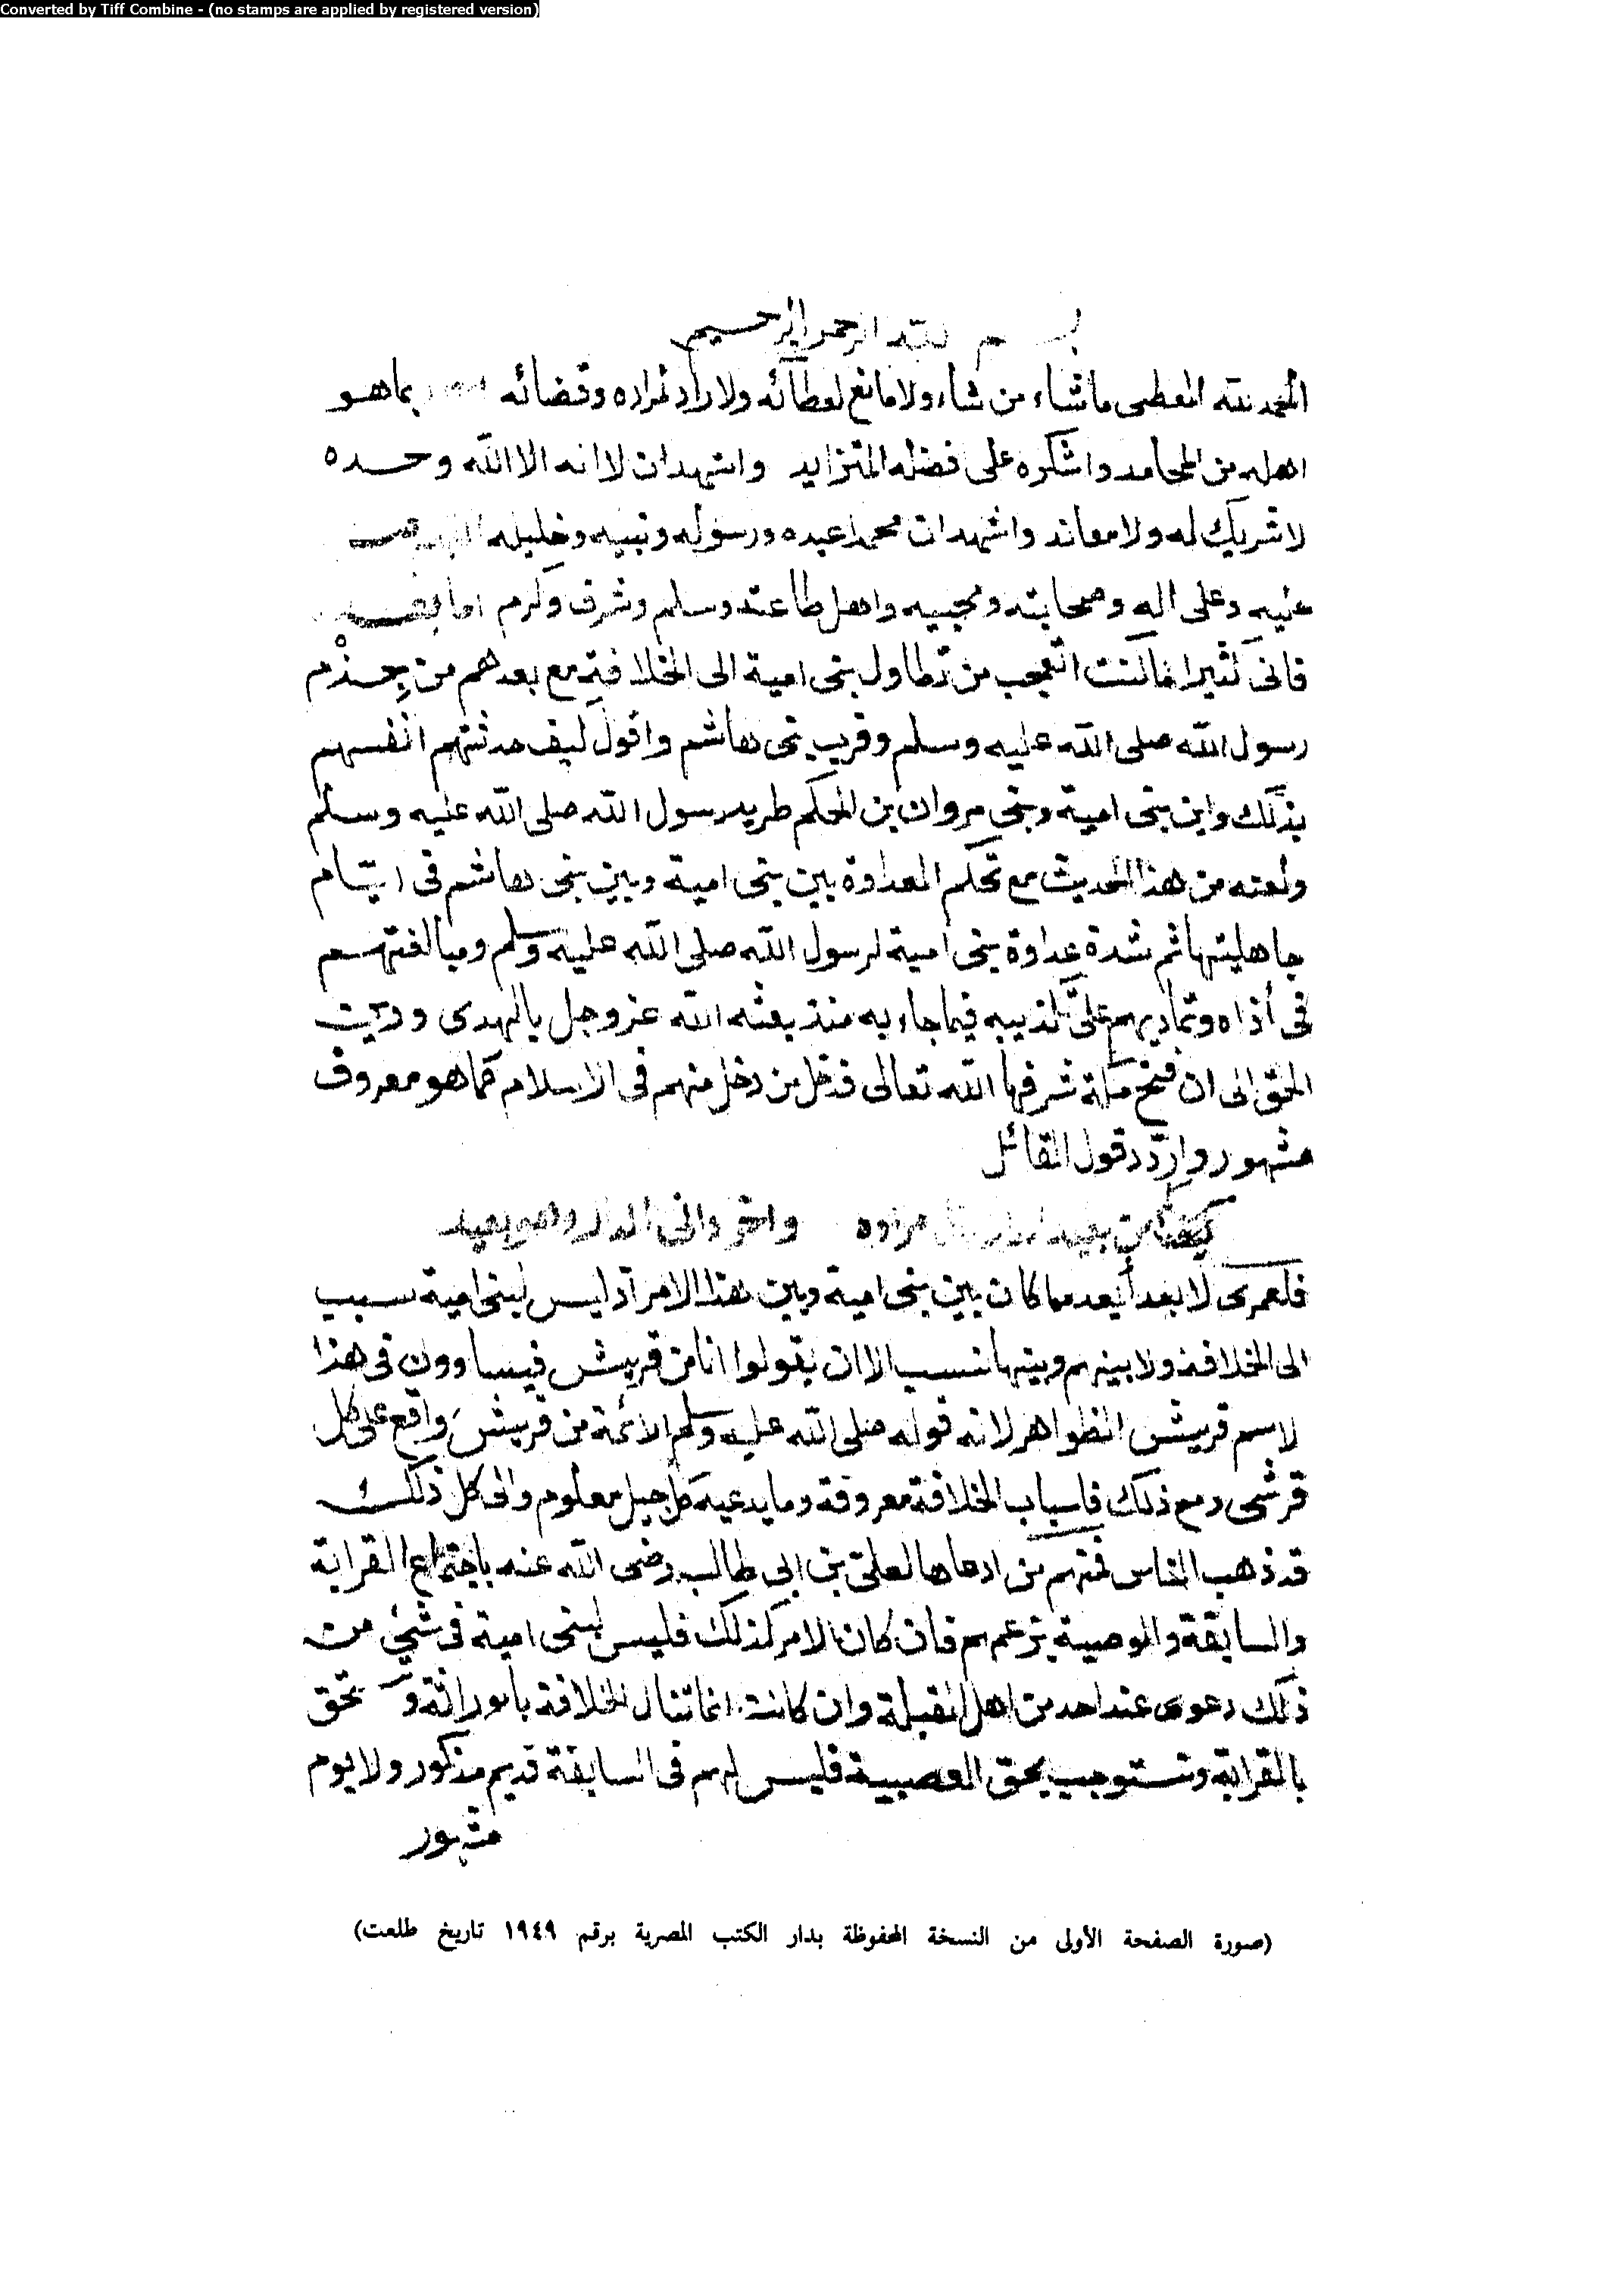 Converted by Tiff Combine - (no stamps are applied by registered version)
بسم الله الرحمن الرحيم
الحمد لله المعطى ماشاء من شاء ولا مانع لعطائه ولا راد لمراده وقضائه بما هو
اهله من المحامد واشكره على فضله المتزايد واشهد ان لا اله الا الله وحده
لا شريك له ولا معاند واشهد ان محمدا عبده ورسوله ونبيه وخليله
عليه وعلى اله وصحابته ومحبيه واهل طاعته وسلم وشرف وكرم اما بعد
فانى كثيرا ما كنت اتعجب من تطاول بنى امية الى الخلافة مع بعدهم من جِذْم
رسول الله صلى الله عليه وسلم وقرب بنى هاشم واقول كيف حدثتهم انفسهم
بذلك واين بنى امية وبنى مروان بن الحكم طريد رسول الله صلى الله عليه وسلم
ولعنه من هذا الحديث مع تحكم العداوة بين بنى امية وبين بنى هاشم فى ايام
جاهليتها ثم شدة عداوة بنى امية لرسول الله صلى الله عليه وسلم ومبالغتهم
فى أذاه وتماديهم على تكذيبه فيما جاء به منذ بعثه الله عز وجل بالهدى ودين
الحق الى ان فتح مكة شرفها الله تعالى فدخل من دخل منهم فى الاسلام كما هو معروف
مشهور واردد قول القائل
كم من بعيد الدار نال مراده واخر دانى الدار وهو بعيد
فلعمرى لا بعد أبعد مما كان بين بنى امية وبين هذا الامر اذ ليس لبنى امية سبب
الى الخلافة ولا بينهم وبينها نسب الا ان يقولوا انا من قريش فيساوون فى هذا
لاسم قريش الظواهر لانه قوله صلى الله عليه وسلم الائمة من قريش واقع على كل
قرشى ومع ذلك فاسباب الخلافة معروفة وما يدعيه كل جيل معلوم والى كل ذلك
قد ذهب الناس فمنهم من ادعاها لعلى بن ابى طالب رضى الله عنه باجتماع القرابة
والسابقة والوصية بزعمهم فان كان الامر كذلك فليس لبنى امية فى شئ من
ذلك دعوى عند احد من اهل القبلة وان كانت انما تنال الخلافة بالوراثة و تحق
بالقرابة وتستوجب بحق العصبية فليس لهم فى السابقة قديم مذكور ولا يوم
مشهور
(صورة الصفحة الأولى من النسخة المحفوظة بدار الكتب المصرية برقم ١٩٤٩ تاريخ طلعت)